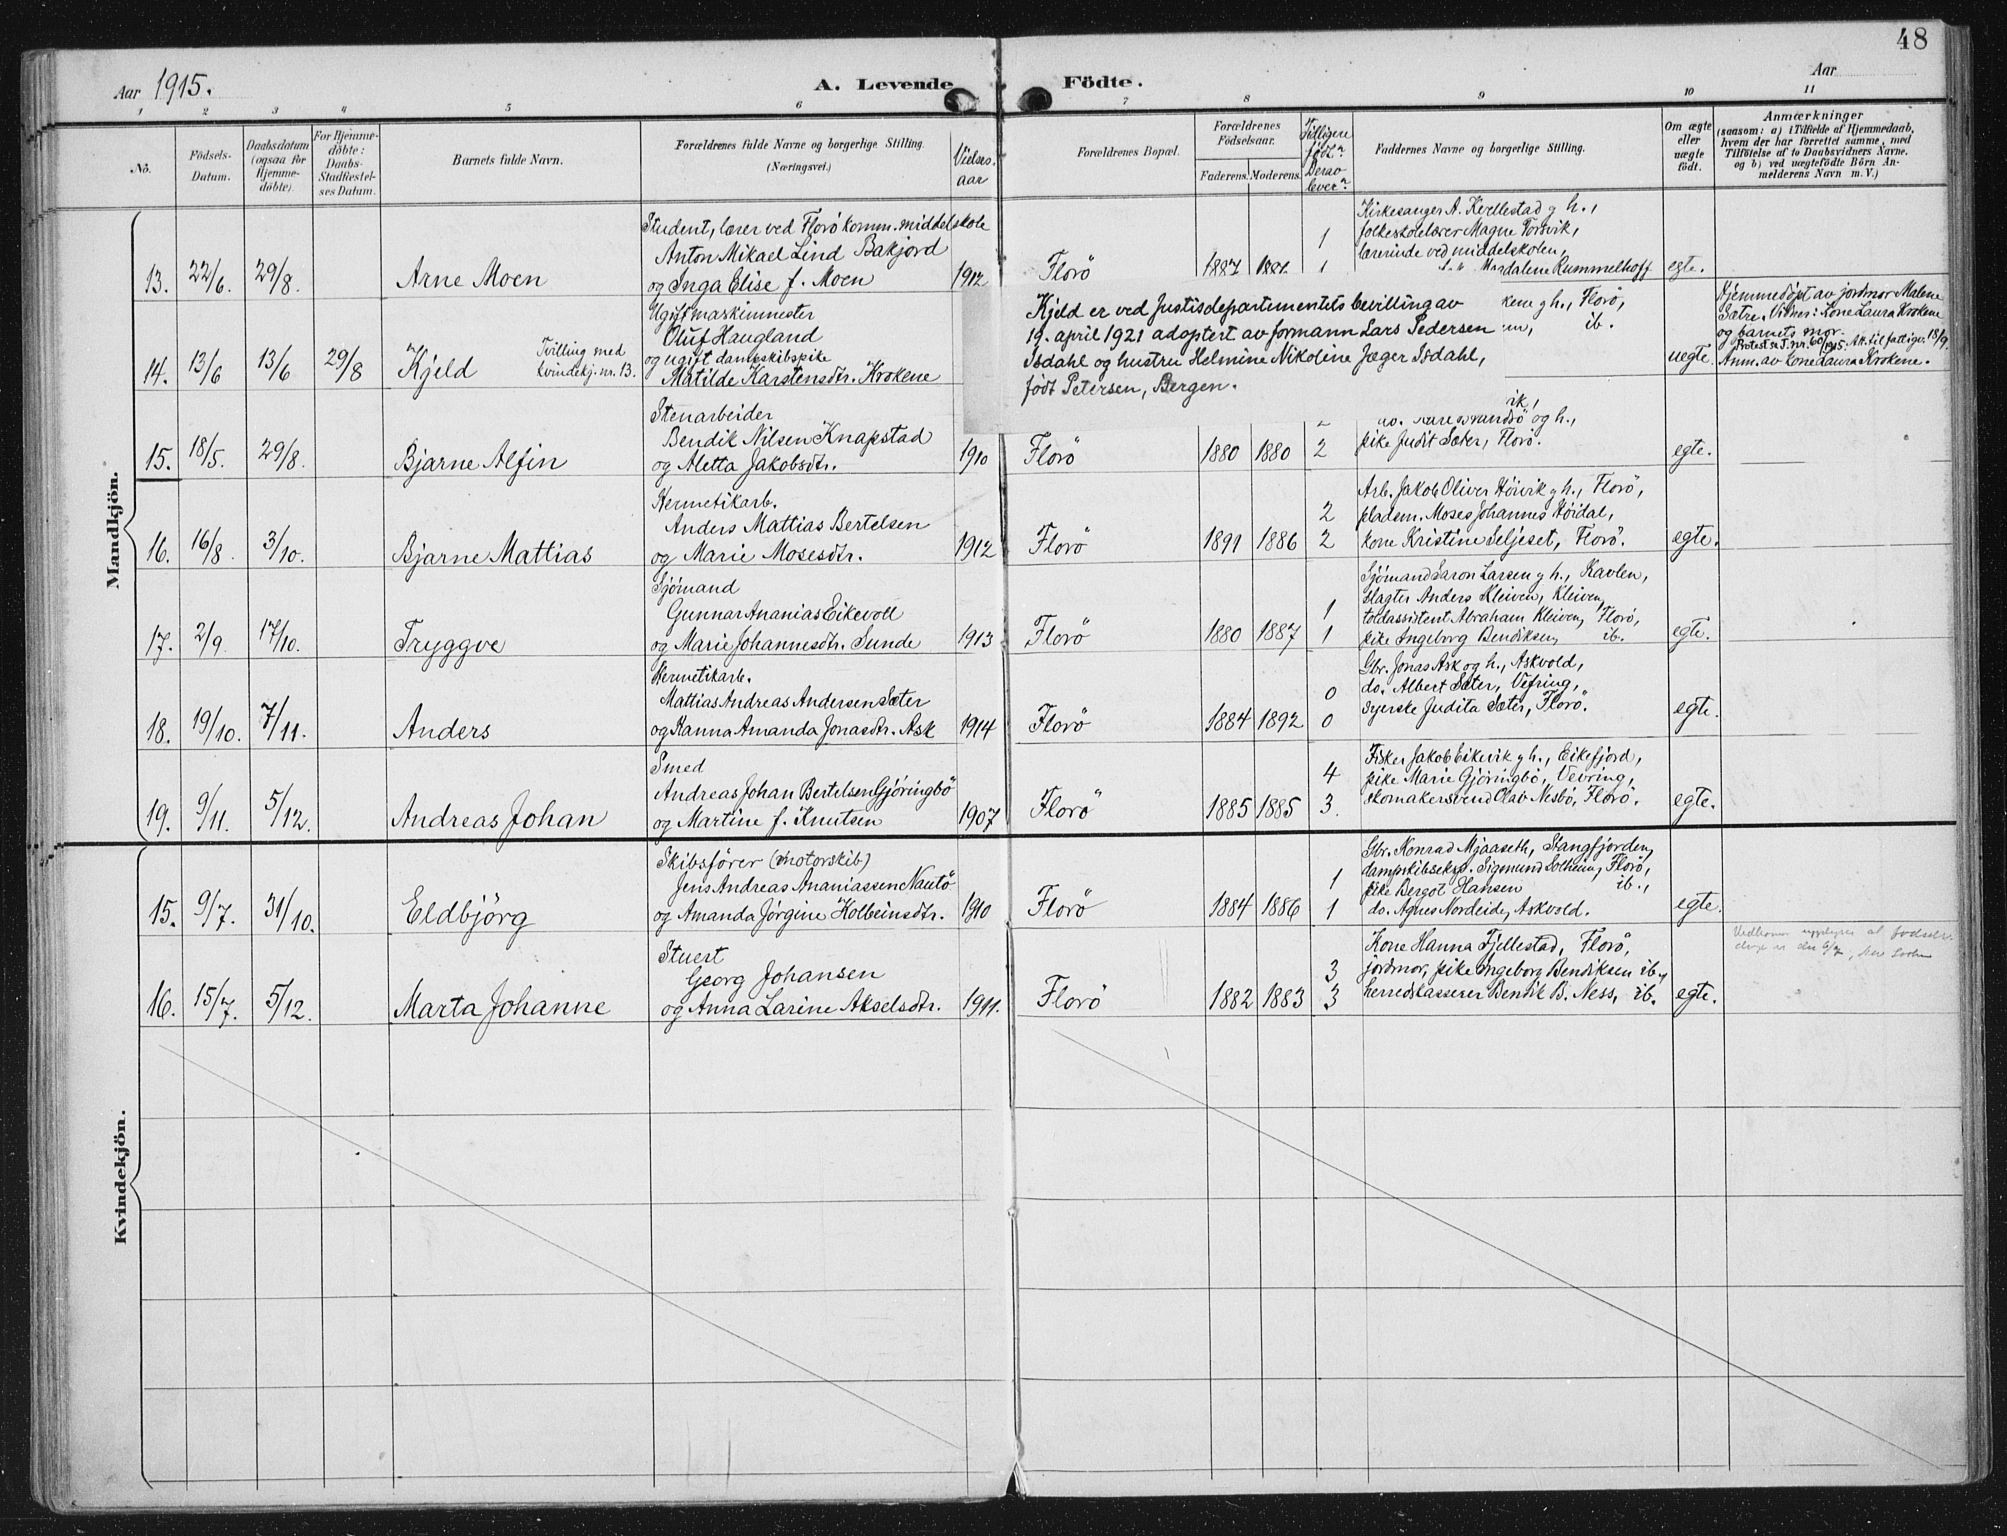 48
Aar 1915.
A. Levende Födte.
Aar
1 2 3 4 5 6 7 8 9 10 11
No.
Födsels-Datum.
Daabsdatum (ogsaa for Hjemme-döbte).
For Hjemme-döbte: Daabs-Stadfæstel-ses Datum.
Barnets fulde Navn.
Forældrenes fulde Navne og borgerlige Stilling.
(Næringsvei.)
Vielses-aar
Forældrenes Bopæl.
Forældrenes Födselsaar.
Faderens. Moderens.
Tidligere födt.
Derav lever.
Faddernes Navne og borgerlige Stilling.
Om ægte eller uægte födt.
Anmærkninger
(saasom: a) i Tilfælde af Hjemmedaab, hvem der har forrettet samme, med Tilföielse af to Daabsvidners Navne. og b) ved uægtefödte Börn An-melderens Navn m. V.)
Mandkjön.
Student, lærer ved Florö komm. middelskole
Anton Mikael Lind Bakjord
13. 22/6. 29/8. Arne Moen og Inga Elise f. Moen 1912 Florö 1887 1881 1 1
Kirkesanger A. Kvellestad g h.,
folkeskolelærer Magne Torvik,
lærerinde ved middelskolen,
Magdalene Rummelhoff egte.
Ugift maskinmester
Oluf Haugland
og ugift dampskibspike
14. 13/6 13/6 29/8 Kjeld Tvilling med kvindekj. nr. 13. Matilde Karstensdtr. Krokene
Kjeld er ved Justisdepartementets bevilling av
19. april 1921 adoptert av formann Lars Pedersen
Isdahl og hustru Helmine Nikoline Jæger Isdahl,
født Petersen, Bergen.
kene g h., Florö,
ib.
uegte.
Hjemmedöpt av jordmor Malene
Sætre. Vidner: Kone Laura Krokene
og barnets mor.
Anm. av kone Laura Krokene.
Stenarbeider
Bendik Nilsen Knapstad
15. 18/5. 29/8. Bjarne Alfin og Aletta Jakobsdtr. 1910 Florö 1880 1880 2
ik,
og h.,
pike Judit Sæter, Florö. egte.
Hermetikarb.
Anders Mattias Bertelsen
16. 16/8. 3/10. Bjarne Mattias og Marie Mosesdtr. 1912 Florö 1891 1886 2 2
Arb. Jakob Oliver Höivik g h., Florö,
pladsm. Moses Johannes Höidal,
kone Kristine Seljeset, Florö. egte.
Sjömand
Gunnar Ananias Eikevoll
17. 2/9. 17/10. Tryggve og Marie Johannesdtr. Sunde 1913 Florö 1880 1887 1 1
Sjömand Saron Larsen g h., Kavlen,
slagter Anders Kleiven, Kleiven,
toldassistent Abraham Kleiven, Florö,
pike Ingeborg Bendiksen, ib. egte.
Hermetikarb.
Mattias Andreas Andersen Sæter
18. 19/10. 7/11. Anders og Hanna Amanda Jonasdtr. Ask 1914 Florö 1884 1892 0 0
Gbr. Jonas Ask og h., Askvold,
do. Albert Sæter, Vefring,
syerske Judita Sæter, Florö. egte.
Smed
Andreas Johan Bertelsen Gjöringbö
19. 9/11. 5/12. Andreas Johan og Martine f. Knutsen 1907 Florö 1885 1885 4 3.
Fisker Jakob Eikevik g h., Eikefjord,
pike Marie Gjöringbö, Vevring,
skomakersvend Olav Nesbö, Florö. egte.
Kvindekjön.
Skibsförer (motorskib)
Jens Andreas Ananiassen Nautö
15. 9/7. 31/10. Eldbjörg og Amanda Jörgine Kolbeinsdtr. 1910 Florö 1884 1886 1 1
Gbr. Konrad Mjaaseth, Stangfjorden,
dampskibseksp. Sigmund Solheim, Florö,
pike Bergot Hansen ib.,
do. Agnes Nordeide, Askvold. egte.
Stuert
Georg Johansen
16. 15/7. 5/12. Marta Johanne og Anna Larine Akselsdtr. 1911. Florö 1882 1883 3 3
Kone Hanna Fjellestad, Florö,
jordmor, pike Ingeborg Bendiksen ib.,
herredskasserer Bendik B. Ness, ib. egte.